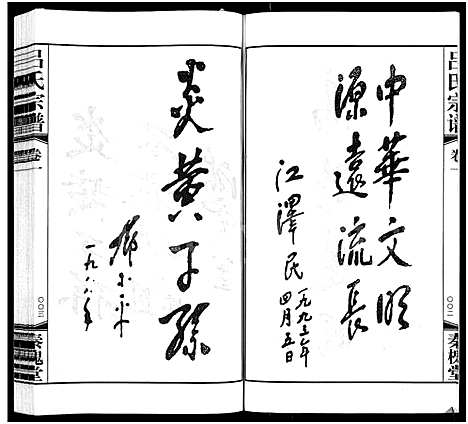 吕氏宗谱
卷一
〇〇二
秦槐堂
中華文明
源遠流長
江澤民
一九九三年
四月五日
炎黄子孫
鄧小平
一九八八年
吕氏宗谱
卷一
〇〇三
秦槐堂